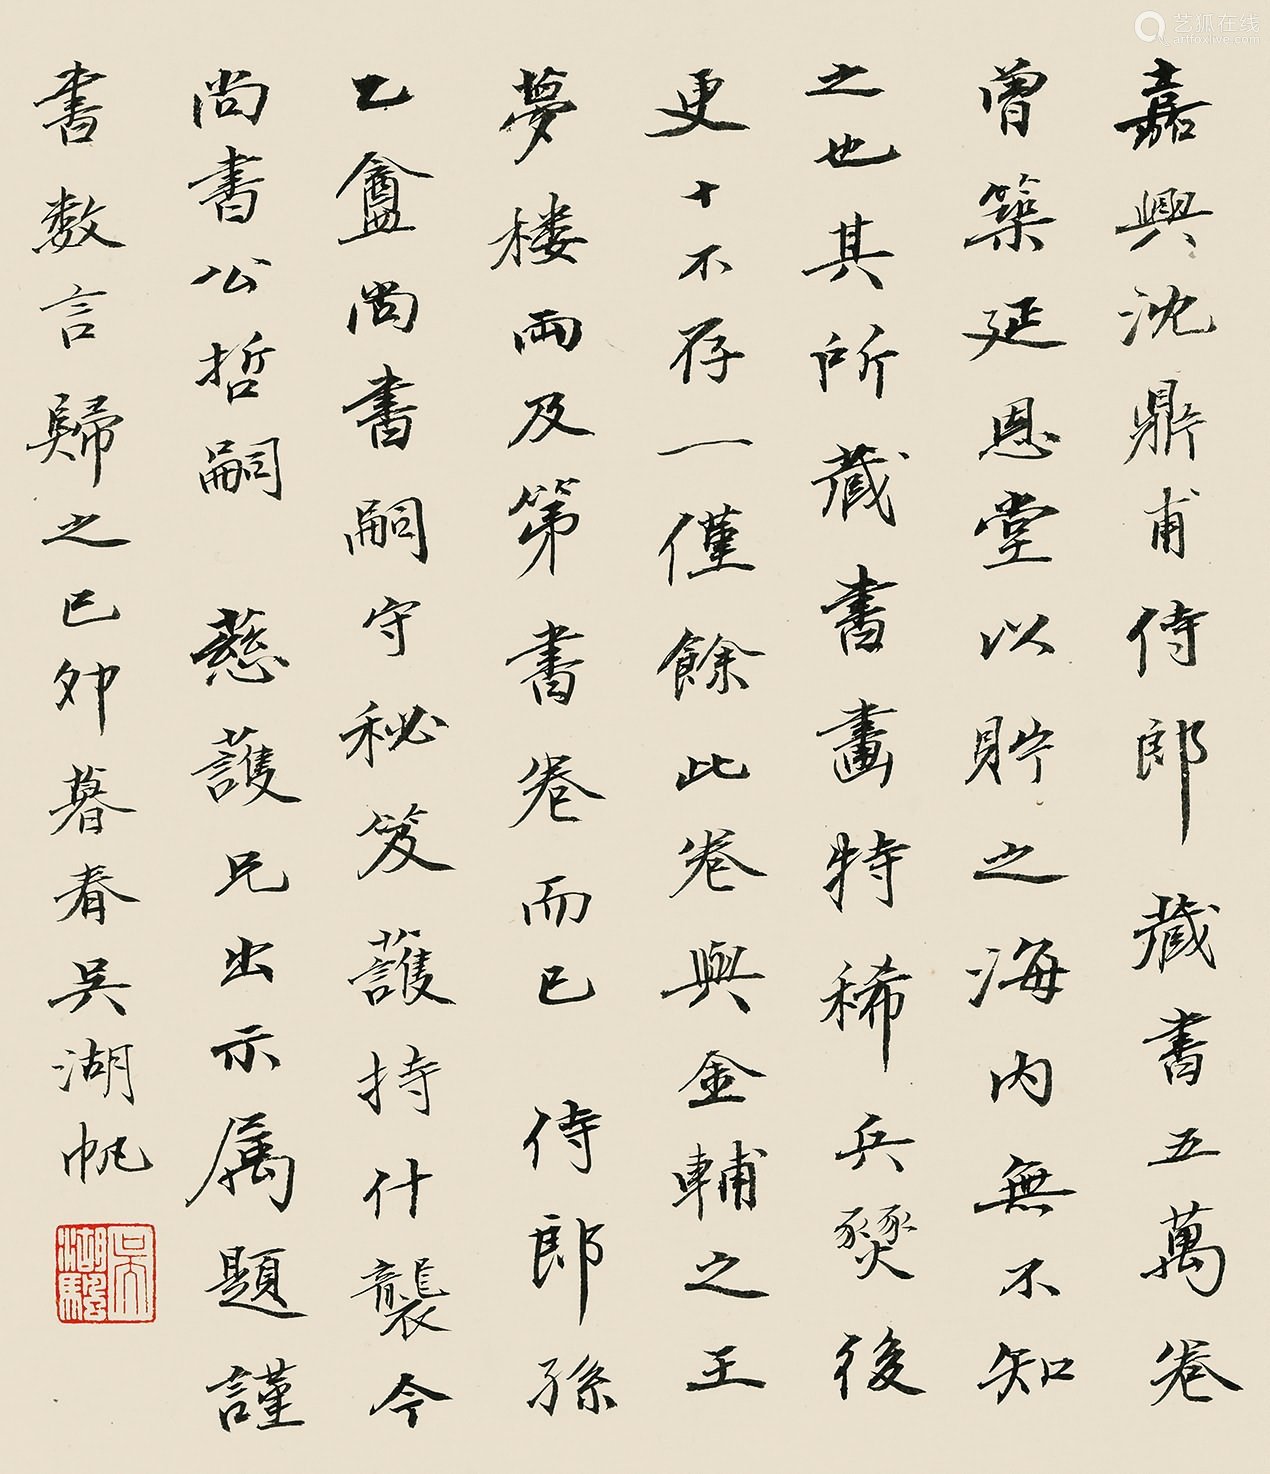 嘉興沈鼎甫侍郎藏書五萬卷
曾築延恩堂以貯之海内無不知
之也其所藏書畫特稀兵燹後
更十不存一僅餘此卷與金輔之王
夢楼兩及第書卷而已 侍郎孫
乙盦尚書嗣守秘笈護持什襲今
尚書公哲嗣 慈護兄出示属題謹
書数言歸之己卯暮春吴湖帆
吴湖驂
艺狐在线
artfoxlive.com